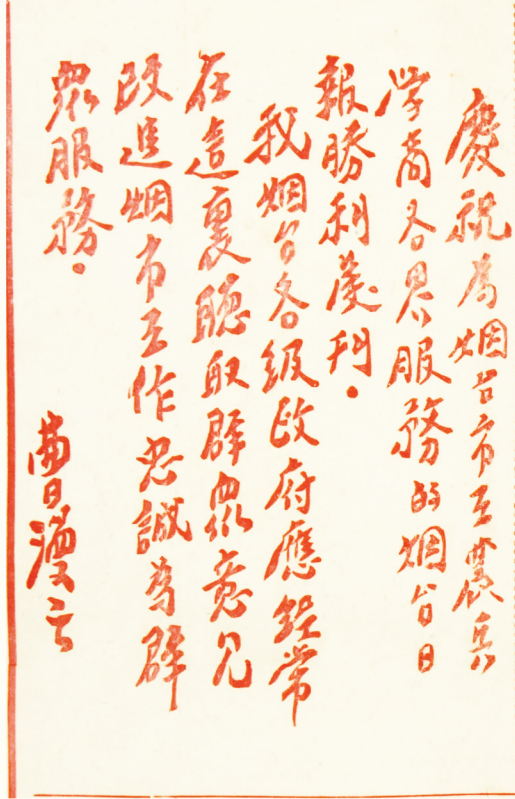 慶祝為烟台市工農兵
学商各界服務的烟台日
報勝利發刊．
我烟台各級政府應經常
在這裏聽取群衆意見
改進烟市工作忠誠為群
衆服務．
曹漫之